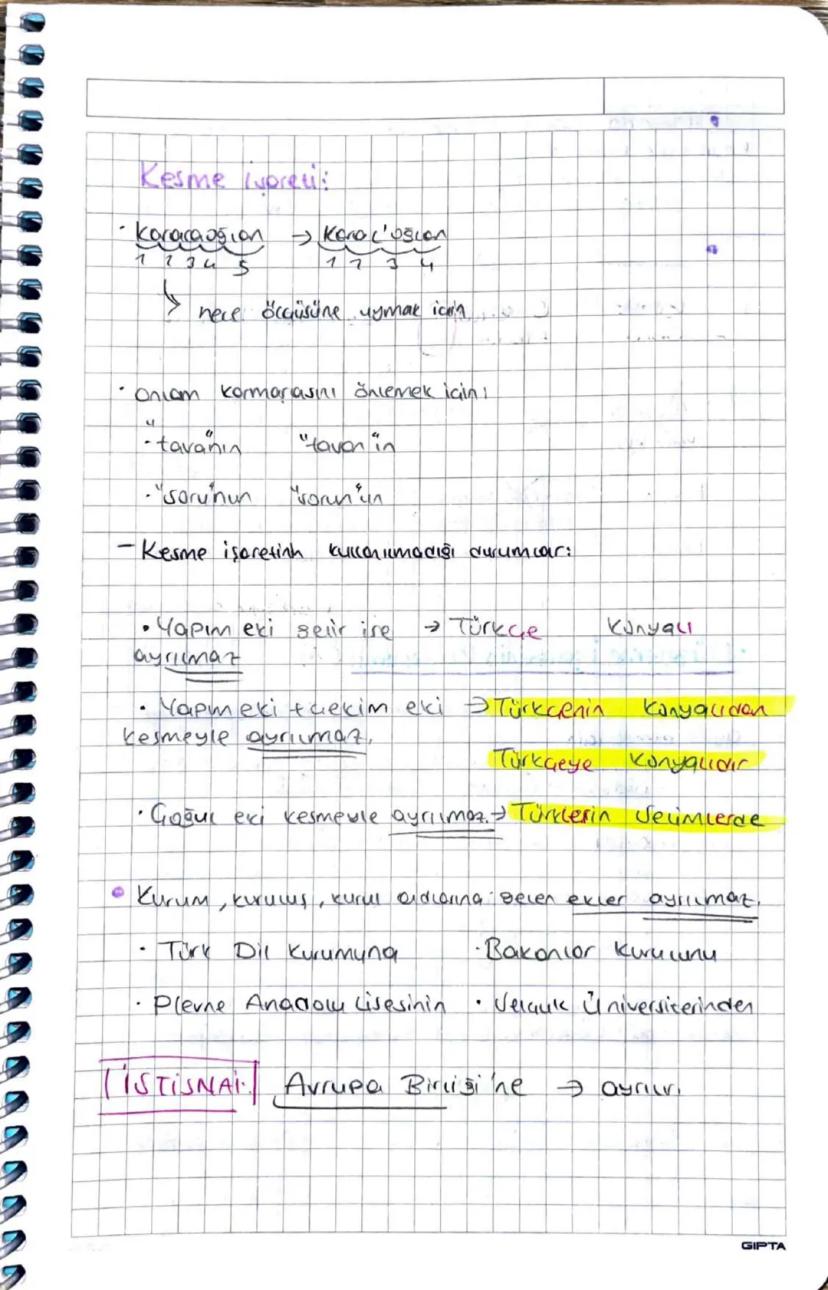 Kesme işareti:
· Karacaoğlan → Karac'oğlan
1 2 3 4 5 1 2 3 4
hece ölçüsüne uymak için
· Anlam karmaşasını önlemek için:
· "tava"nın "tavan"ın
· "soru"nun "sorun"un
- Kesme işaretinin kullanılmadığı durumlar:
• Yapım eki gelir ise → Türkçe Konyalı
ayrılmaz
· Yapım eki + çekim eki → Türkçenin Konyalıdan
kesmeyle ayrılmaz.
Türkçeye Konyalıdır
· Çoğul eki kesmeyle ayrılmaz. → Türklerin Selimlerde
• Kurum, kuruluş, kurul adlarına gelen ekler ayrılmaz.
· Türk Dil Kurumuna · Bakanlar Kurulunu
· Plevne Anadolu Lisesinin · Selçuk Üniversitesinden
İSTİSNA: Avrupa Birliği'ne → ayrılır.
GIPTA